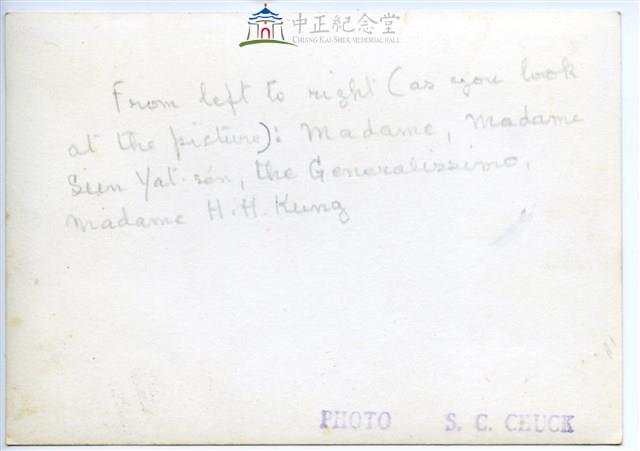 中正紀念堂
CHIANG KAI-SHEK MEMORIAL HALL
From left to right (as you look
at the picture): Madame, Madame
Sun Yat-sen, the Generalissimo,
Madame H.H. Kung
PHOTO S. C. CHUCK